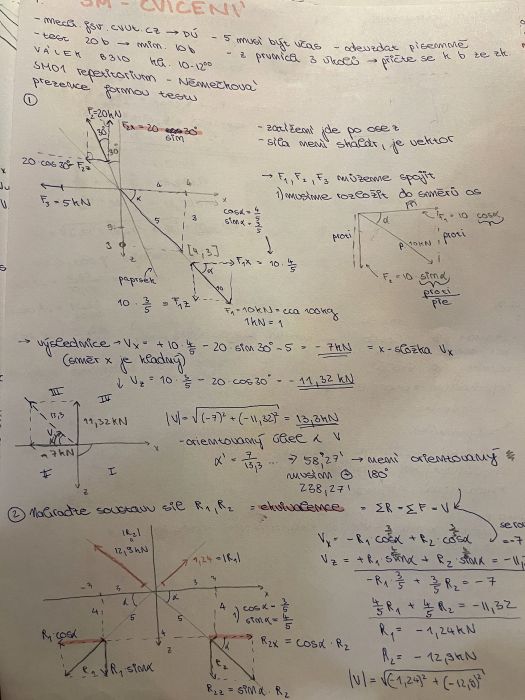 SM - CVIČENÍ
- mech.fsv.cvut.cz → DÚ - 5 musí být včas - odevzdat písemně
- test 20b → mim. 10b - z prvních 3 úkolů → přičte se k b ze zk
VÁLEK B310 kl. 10-12⁰⁰
SM01 repetitorium - Němečková
prezence formou testu
①
F₂=20kN
F₂x = 20 · sin 30°
30°
30°
20 cos 30° = F₂z
F₃ = 5kN
- zatížení jde po ose z
- síla není skalár, je vektor
→ F₁, F₂, F₃ můžeme spojit
1) musíme rozložit do směrů os
cos α = 4/5
sin α = 3/5
[4,3]
paprsek
F₁x = 10 · 4/5
10 · 3/5 = F₁z
F₁ = 10kN = cca 100kg
1kN = 1
při
F₁ = 10 cosα
proti
proti
10kN
F₂ = 10 · sinα
proti
pře
→ výslednice → Vx = +10 4/5 - 20 sin 30° - 5 = -7kN = x-složka Vx
(směr x je kladný)
↓ Vz = 10 · 3/5 - 20 · cos 30° = -11,32 kN
III
IV
13,3
11,32kN
7kN
II
I
|V| = √(-7)² + (-11,32)² = 13,3kN
- orientovaný úhel α V
α' = 7/13,3 ... → 58,27' → není orientovaný
musím ⊕ 180°
238,27'
② Nahraďte soustavu sil R₁, R₂ = ekvivalence = ΣR = ΣF = V
|R₂|
12,9kN
1,24 = |R₁|
Vx = -R₁ cosα + R₂ cosα = -7
Vz = +R₁ sinα + R₂ sinα = -11
-R₁ 3/5 + 3/5 R₂ = -7
4/5 R₁ + 4/5 R₂ = -11,32
1) cosα = 3/5
sinα = 4/5
R₁ cosα
R₂x = cosα · R₂
R₁ = -1,24kN
R₂ = -12,9kN
R₂
R₁ sinα
R₂
R₂z = sinα · R₂
|V| = √(-1,24)² + (-12,9)²